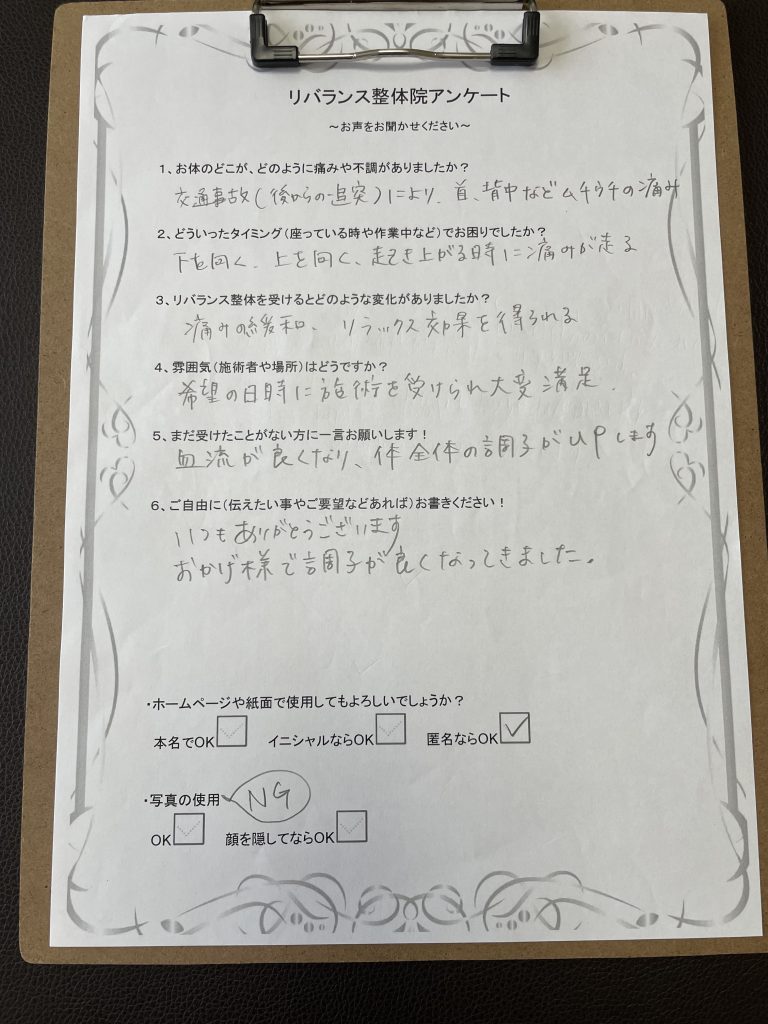 リバランス整体院アンケート
～お声をお聞かせください～
1、お体のどこが、どのように痛みや不調がありましたか？
交通事故(後からの追突)により、首、背中などムチウチの痛み
2、どういったタイミング(座っている時や作業中など)でお困りでしたか？
下を向く、上を向く、起き上がる時に痛みが走る
3、リバランス整体を受けるとどのような変化がありましたか？
痛みの緩和、リラックス効果を得られる
4、雰囲気(施術者や場所)はどうですか？
希望の日時に施術を受けられ大変満足.
5、まだ受けたことがない方に一言お願いします！
血流が良くなり、体全体の調子がUPします
6、ご自由に(伝えたい事やご要望などあれば)お書きください！
いつもありがとうございます
おかげ様で調子が良くなってきました。
・ホームページや紙面で使用してもよろしいでしょうか？
本名でOK イニシャルならOK 匿名ならOK
・写真の使用 NG
OK 顔を隠してならOK